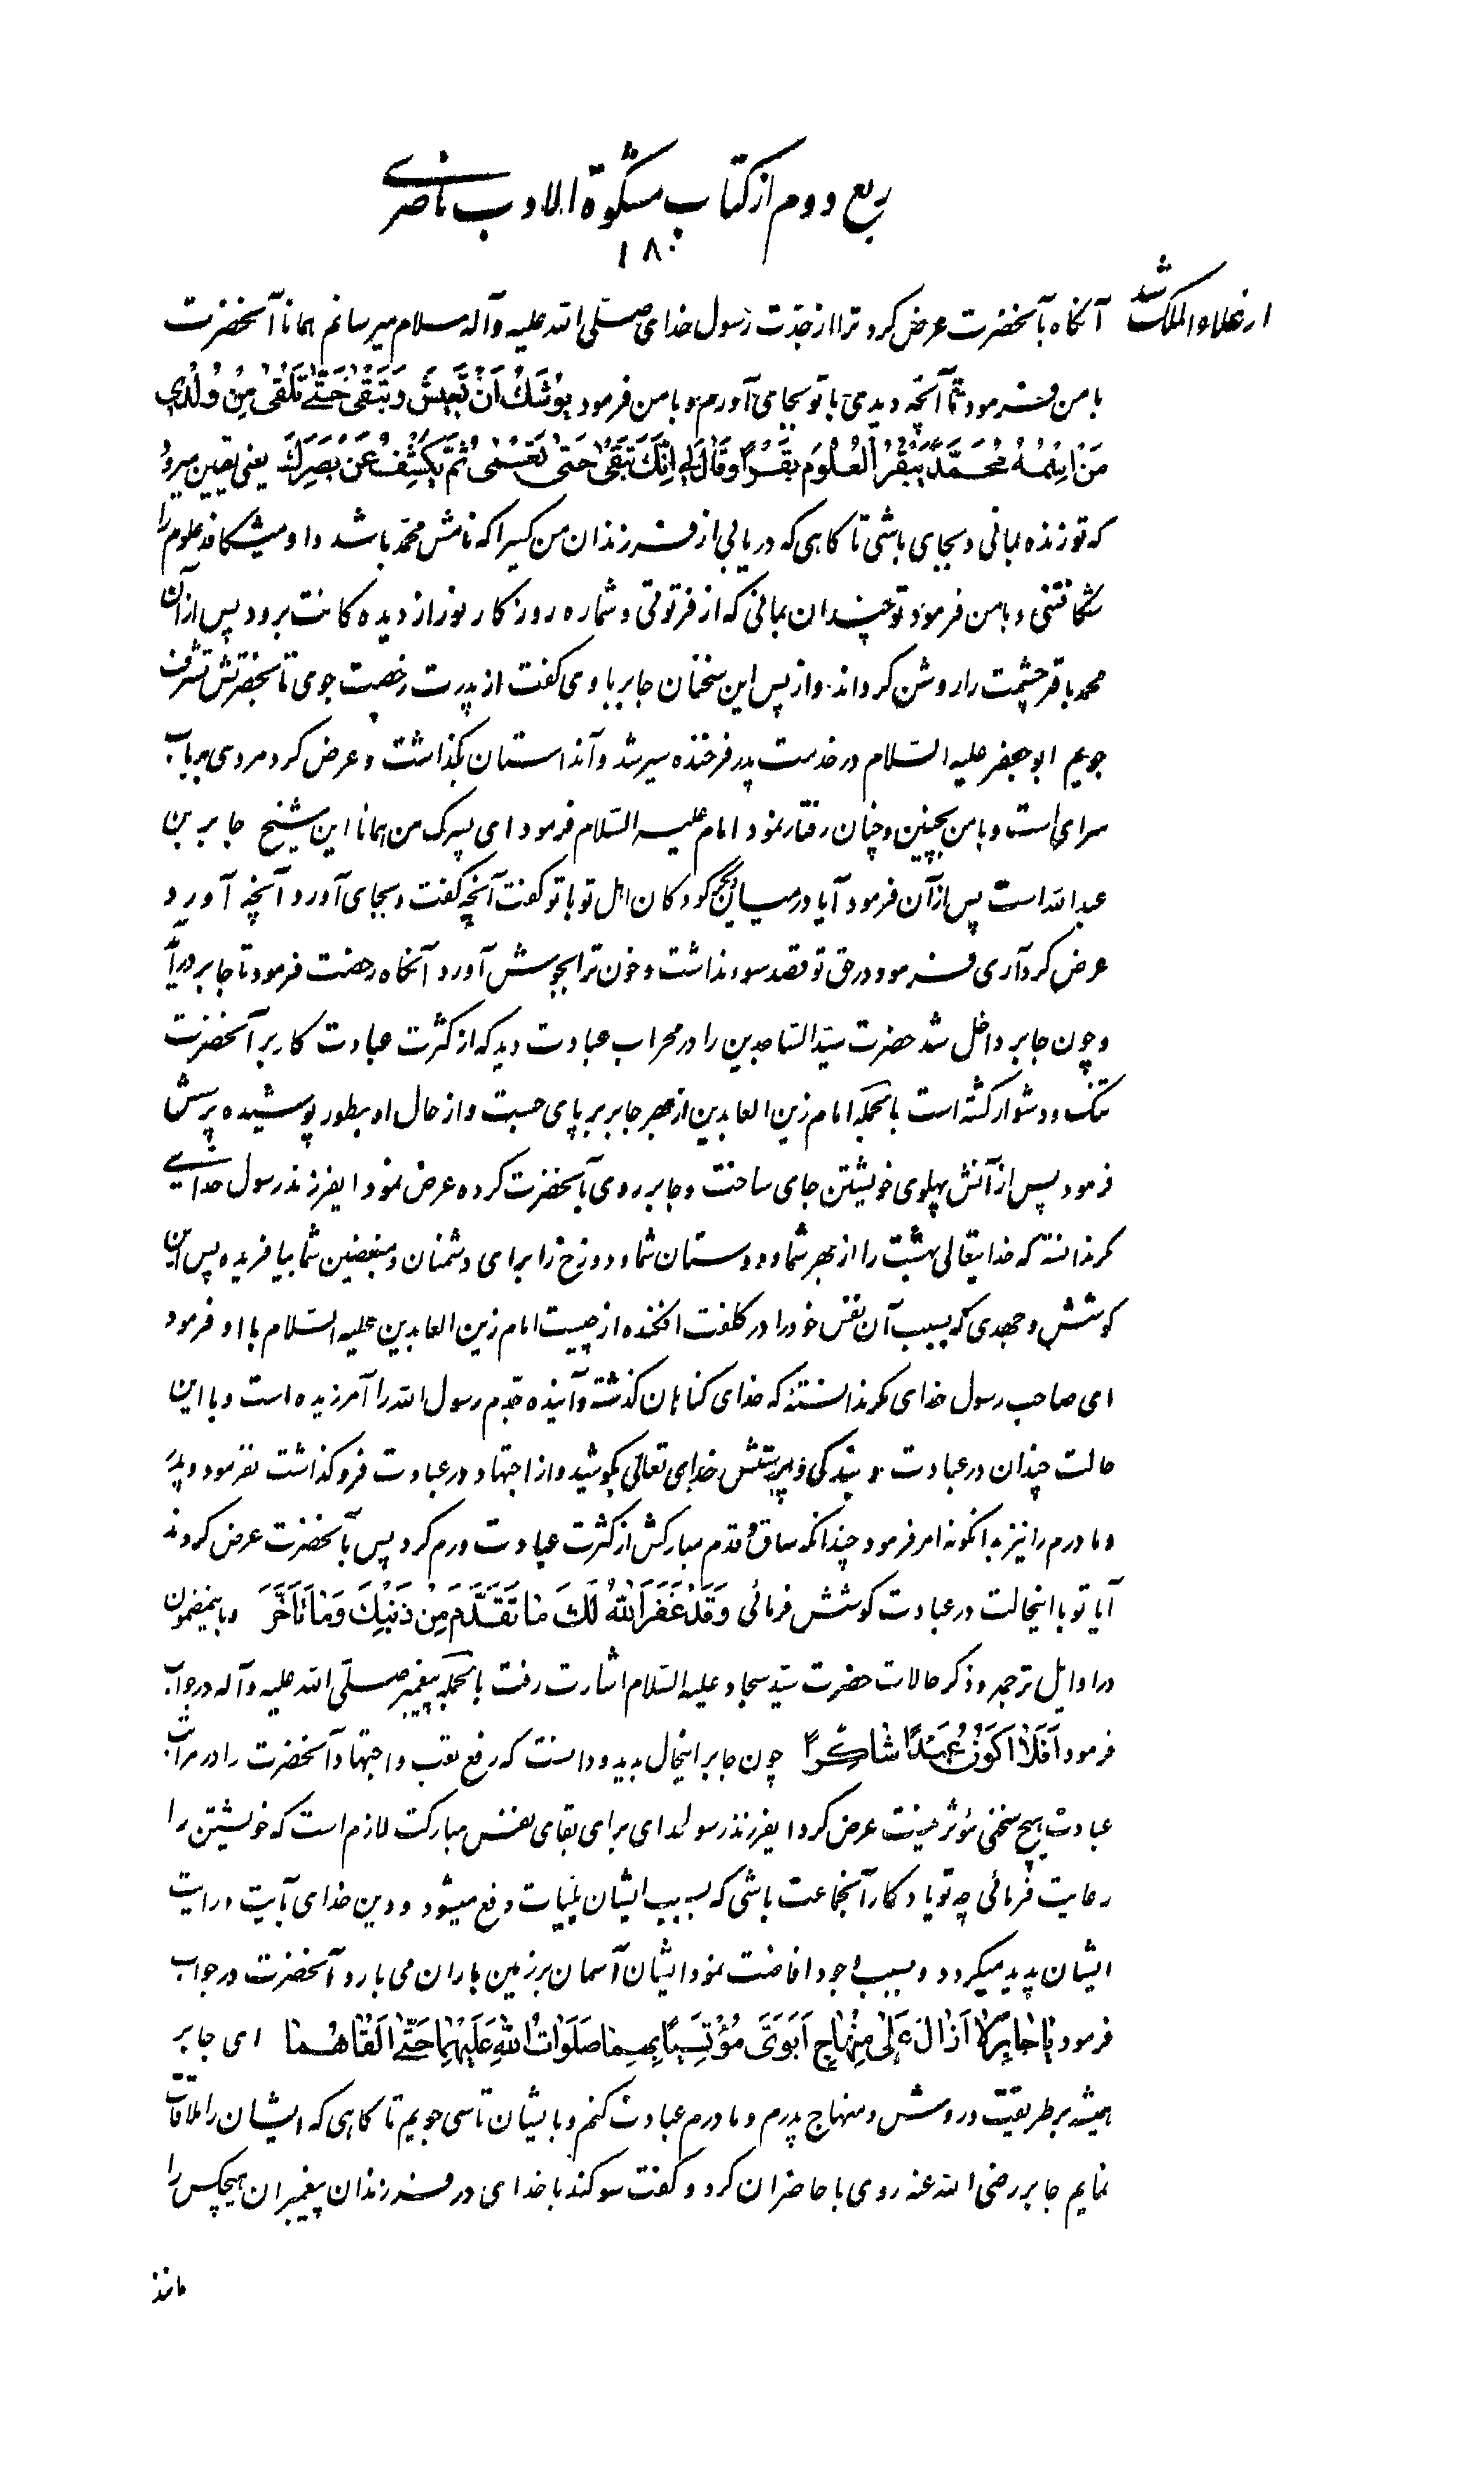 ربع دوم از کتاب مشکوة الادب ناصری
۱۸۰
آنگاه بآنحضرت عرض کرد ترا از جدّت رسول خدای صلّی الله علیه وآله سلام میرسانم همانا آنحضرت
با من فرمود تا آنچه دیدی با تو بجای آورم و با من فرمود یُوشَكُ اَنْ تَعیشَ وَ تَبْقیٰ حَتّیٰ تَلْقیٰ مِنْ وُلْدی
مَنْ اِسْمُهُ مُحَمَّدٌ یَبْقُرُ الْعُلُومَ بَقْراً وَ قالَ لی اِنَّكَ تَبْقیٰ حَتیٰ تَعْمیٰ ثُمَّ یَكْشِفُ عَنْ بَصَرِكَ یعنی تعیین میرود
که تو زنده بمانی و بجای باشی تا گاهی که دریابی از فرزندان من کسیرا که نامش محمد باشد و او میشکافد علوم را
شکافتنی و با من فرمود تو چندان بمانی که از فرتوتی و شماره روزگار نور از دیده گانت برود پس از آن
محمد باقر چشمت را روشن گرداند و از پس این سخنان جابر با وی گفت از پدرت رخصت جوی تا بحضرتش تشرف
جویم ابو جعفر علیه السّلام در خدمت پدر فرخنده سیر شد و آنداستان بگذاشت و عرض کرد مردی بر باب
سرای است و با من بچنین و چنان رفتار نمود امام علیه السّلام فرمود ای پسرک من همانا این شیخ جابر بن
عبدالله است پس از آن فرمود آیا در میان دیگر کودکان اهل تو با تو گفت آنچه گفت و بجای آورد آنچه آورد
عرض کرد آری فرمود در حق تو قصد سوء نداشت و خون ترا بجوش آورد آنگاه رخصت فرمود تا جابر درآید
و چون جابر داخل شد حضرت سیّد السّاجدین را در محراب عبادت دید که از کثرت عبادت کار بر آنحضرت
تنگ و دشوار گشته است بالجمله امام زین العابدین از بهر جابر بر پای جست و از حال او بطور پوشیده پرسش
فرمود پس از آنش پهلوی خویشتن جای ساخت و جابر روی بآنحضرت کرده عرض نمود ایفرزند رسول خدای
مگر ندانسته که خدایتعالی بهشت را از بهر شما و دوستان شما و دوزخ را برای دشمنان و مبغضین شما بیافریده پس این
کوشش و جهدی که بسبب آن نفس خود را در کلفت افکنده از چیست امام زین العابدین علیه السّلام با او فرمود
ای صاحب رسول خدای مگر ندانستهٔ که خدای گناهان گذشته و آینده جدّم رسول الله را آمرزیده است و با این
حالت چندان در عبادت و بندگی و پرستش خدای تعالی بکوشید و از اجتهاد در عبادت فروگذاشت نفرمود و پدر
و مادرم را نیز بدانگونه امر فرمود چندانکه ساق و قدم مبارکش از کثرت عبادت ورم کرد پس بآنحضرت عرض کردند
آیا تو با اینحالت در عبادت کوشش فرمائی وَقَدْ غَفَرَ اللهُ لَكَ ما تَقَدَّمَ مِنْ ذَنْبِكَ وَما تَاَخَّرَ و باینمضمون
در اوایل ترجمه و ذکر حالات حضرت سیّد سجاد علیه السّلام اشارت رفت بالجمله پیغمبر صلّی الله علیه وآله در جواب
فرمود اَفَلا اَكُونُ عَبْداً شاكِراً چون جابر اینحال بدید و دانست که رفع تعب و اجتهاد آنحضرت را در مراتب
عبادت هیچ سخنی مؤثر نیست عرض کرد ایفرزند رسولخدای برای بقای نفس مبارکت لازم است که خویشتن را
رعایت فرمائی چه تو یادگار آنجماعت باشی که بسبب ایشان بلیات دفع میشود و دین خدای بآیت و رایت
ایشان پدید میگردد و بسبب وجود افاضت نمود ایشان آسمان بر زمین باران می بارد آنحضرت در جواب
فرمود یا جابِرُ لا اَزالُ عَلیٰ مِنْهاجِ اَبَوَیَّ مُؤْتَسِیاً بِهِما صَلَواتُ اللهِ عَلَیْهِما حَتّیٰ اَلْقاهُما ای جابر
همیشه بر طریقت و روش و منهاج پدرم و مادرم عبادت کنم و بایشان تاسی جویم تا گاهی که ایشان را ملاقات
نمایم جابر رضی الله عنه روی با حاضران کرد و گفت سوگند با خدای در فرزندان پیغمبران هیچکس را
مانند